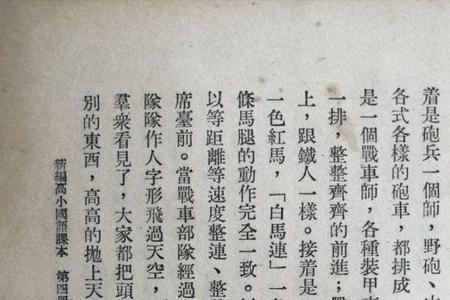 着是砲兵一個師，野砲、
各式各樣的砲車，都排成
是一個戰車師，各種裝甲
一排，整整齊齊的前進；
上，跟鐵人一樣。接着是
一色紅馬，「白馬連」一
條馬腿的動作完全一致。
以等距離等速度整連、整
席臺前。當戰車部隊經過
隊隊作人字形飛過天空，
羣衆看見了，大家都把頭
別的東西，高高的拋上天
新編高小國語課本 第四